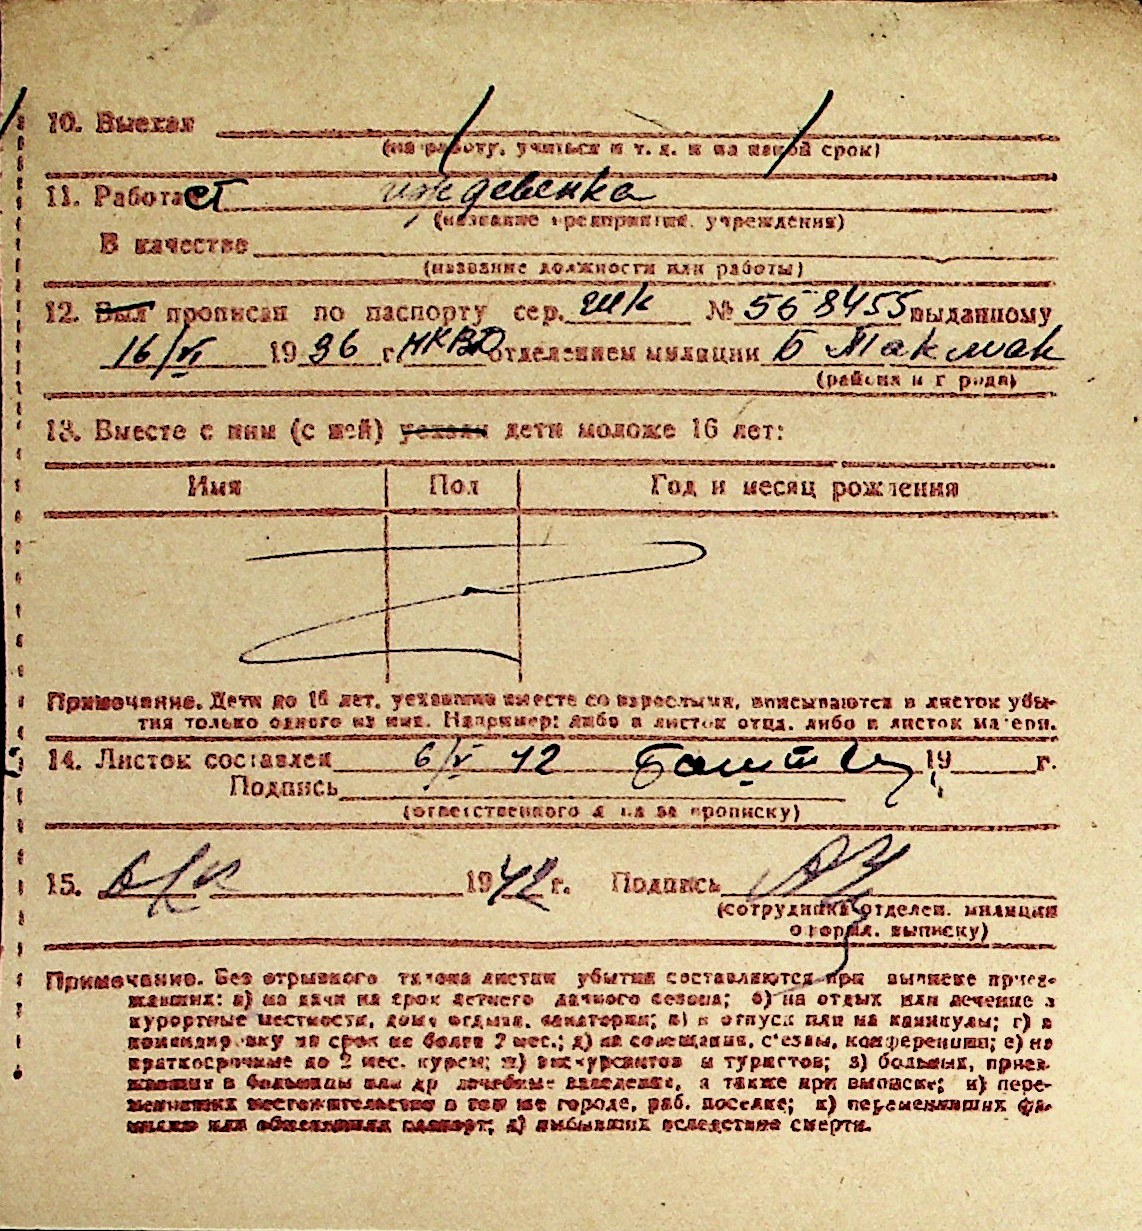 10. Выехал
(на работу, учиться и т. д. и на какой срок)
11. Работает иждевенка
(название предприятия, учреждения)
В качестве
(название должности или работы)
12. Был прописан по паспорту сер. ШК № 568455 выданному
16/VI 1936 г. НКВД отделением милиции Б Такмак
(района и города)
13. Вместе с ним (с ней) уехали дети моложе 16 лет:
Имя Пол Год и месяц рождения
Примечание. Дети до 16 лет, уехавшие вместе со взрослыми, вписываются в листок убы-
тия только одного из них. Например: либо в листок отца, либо в листок матери.
14. Листок составлен 6/V 42 19 г.
Подпись
(ответственного лица за прописку)
15. 1942 г. Подпись
(сотрудника отделен. милиции
оформл. выписку)
Примечание. Без отрывного талона листки убытия составляются при выписке приез-
жавших: а) на дачи на срок летнего дачного сезона; б) на отдых или лечение в
курортные местности, дома отдыха, санатории; в) в отпуск или на каникулы; г) в
командировку на срок не более 2 мес.; д) на совещания, съезды, конференции; е) на
краткосрочные до 2 мес. курсы; ж) экскурсантов и туристов; з) больных, приез-
жавших в больницы или др лечебные заведения, а также при выписке; и) пере-
менивших местожительство в том же городе, раб. поселке; к) переменивших фа-
милию или обменявших паспорт; л) выбывших вследствие смерти.